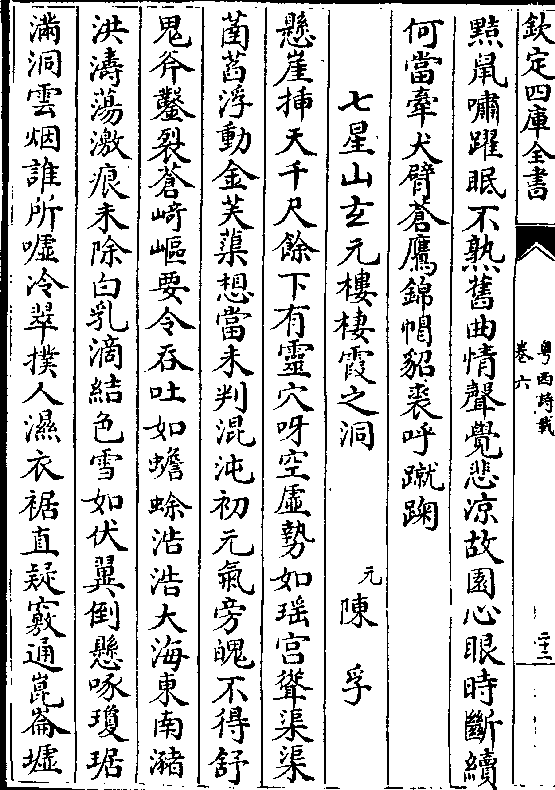 欽定四庫全書
粵西詩載
卷六
二十二
㸃鼠嘯躍眠不熟舊曲情聲覺悲凉故園心眼時斷續
何當牽犬臂蒼鷹錦帽貂裘呼蹴踘
七星山玄元樓棲霞之洞
元陳孚
懸崖揷天千尺餘下有靈穴呀空虚勢如瑶宫聳渠渠
菌萏浮動金芙蕖想當未判混沌初元氣旁魄不得舒
鬼斧鑿裂蒼﨑嶇要令吞吐如蟾蜍浩浩大海東南瀦
洪濤蕩激痕未除白乳滴結色雪如伏翼倒懸啄瓊琚
滿洞雲烟誰所嘘冷翠撲人濕衣裾直疑竅通崑崙墟